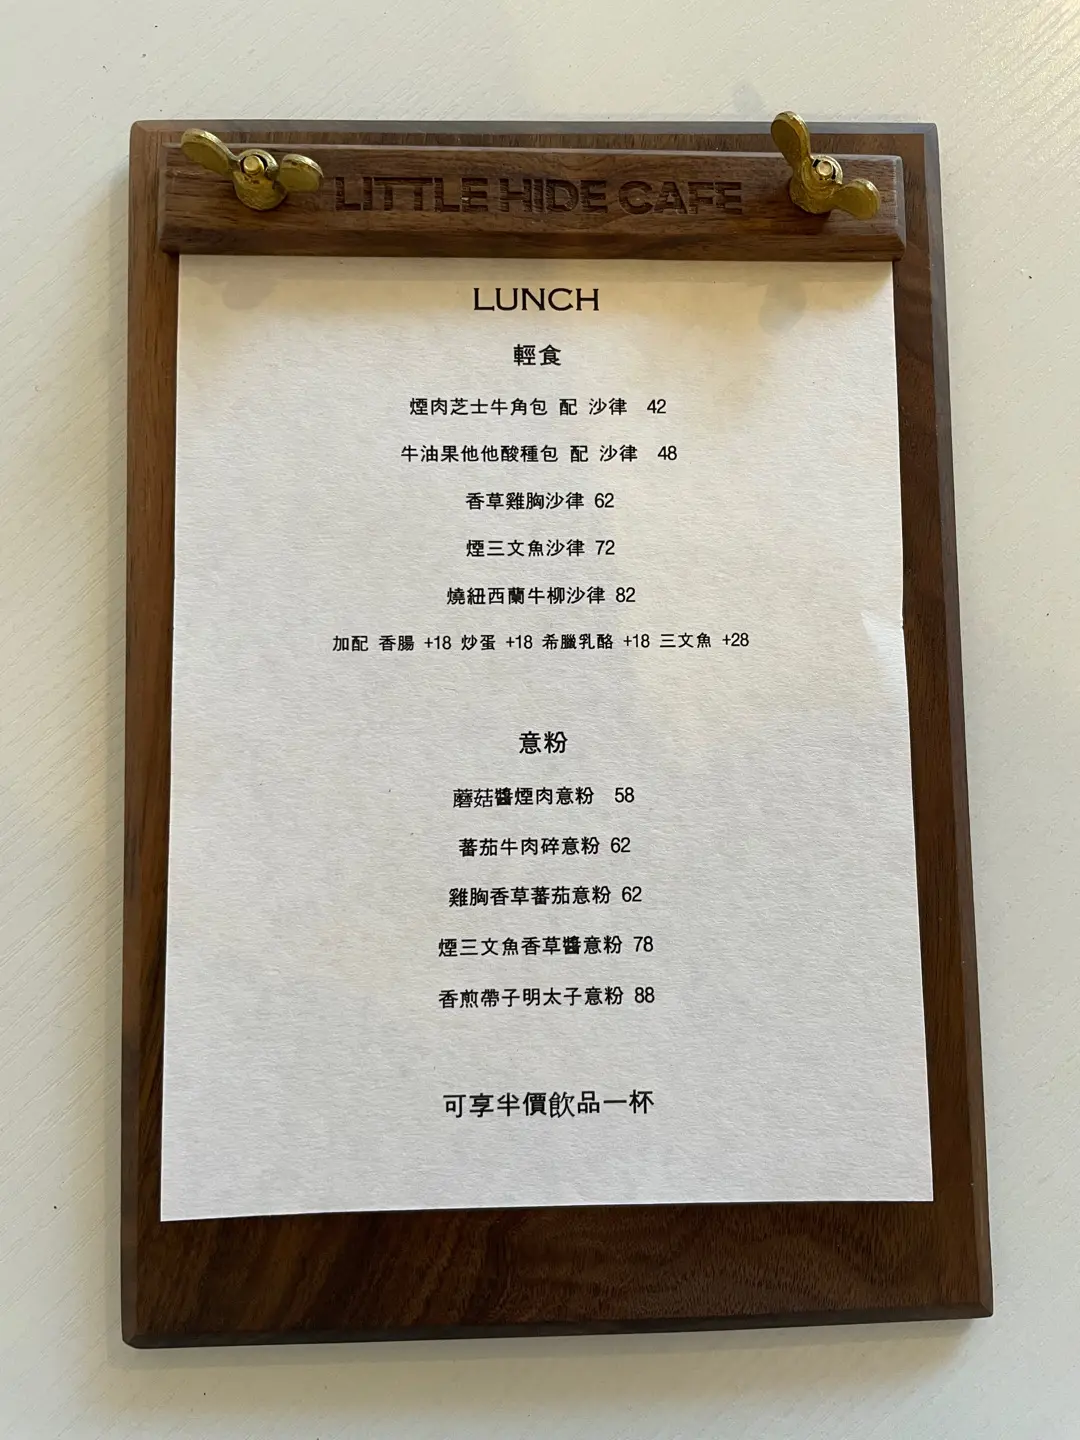 LITTLE HIDE CAFE
LUNCH
輕食
煙肉芝士牛角包 配 沙律 42
牛油果他他酸種包 配 沙律 48
香草雞胸沙律 62
煙三文魚沙律 72
燒紐西蘭牛柳沙律 82
加配 香腸 +18 炒蛋 +18 希臘乳酪 +18 三文魚 +28
意粉
蘑菇醬煙肉意粉 58
蕃茄牛肉碎意粉 62
雞胸香草蕃茄意粉 62
煙三文魚香草醬意粉 78
香煎帶子明太子意粉 88
可享半價飲品一杯